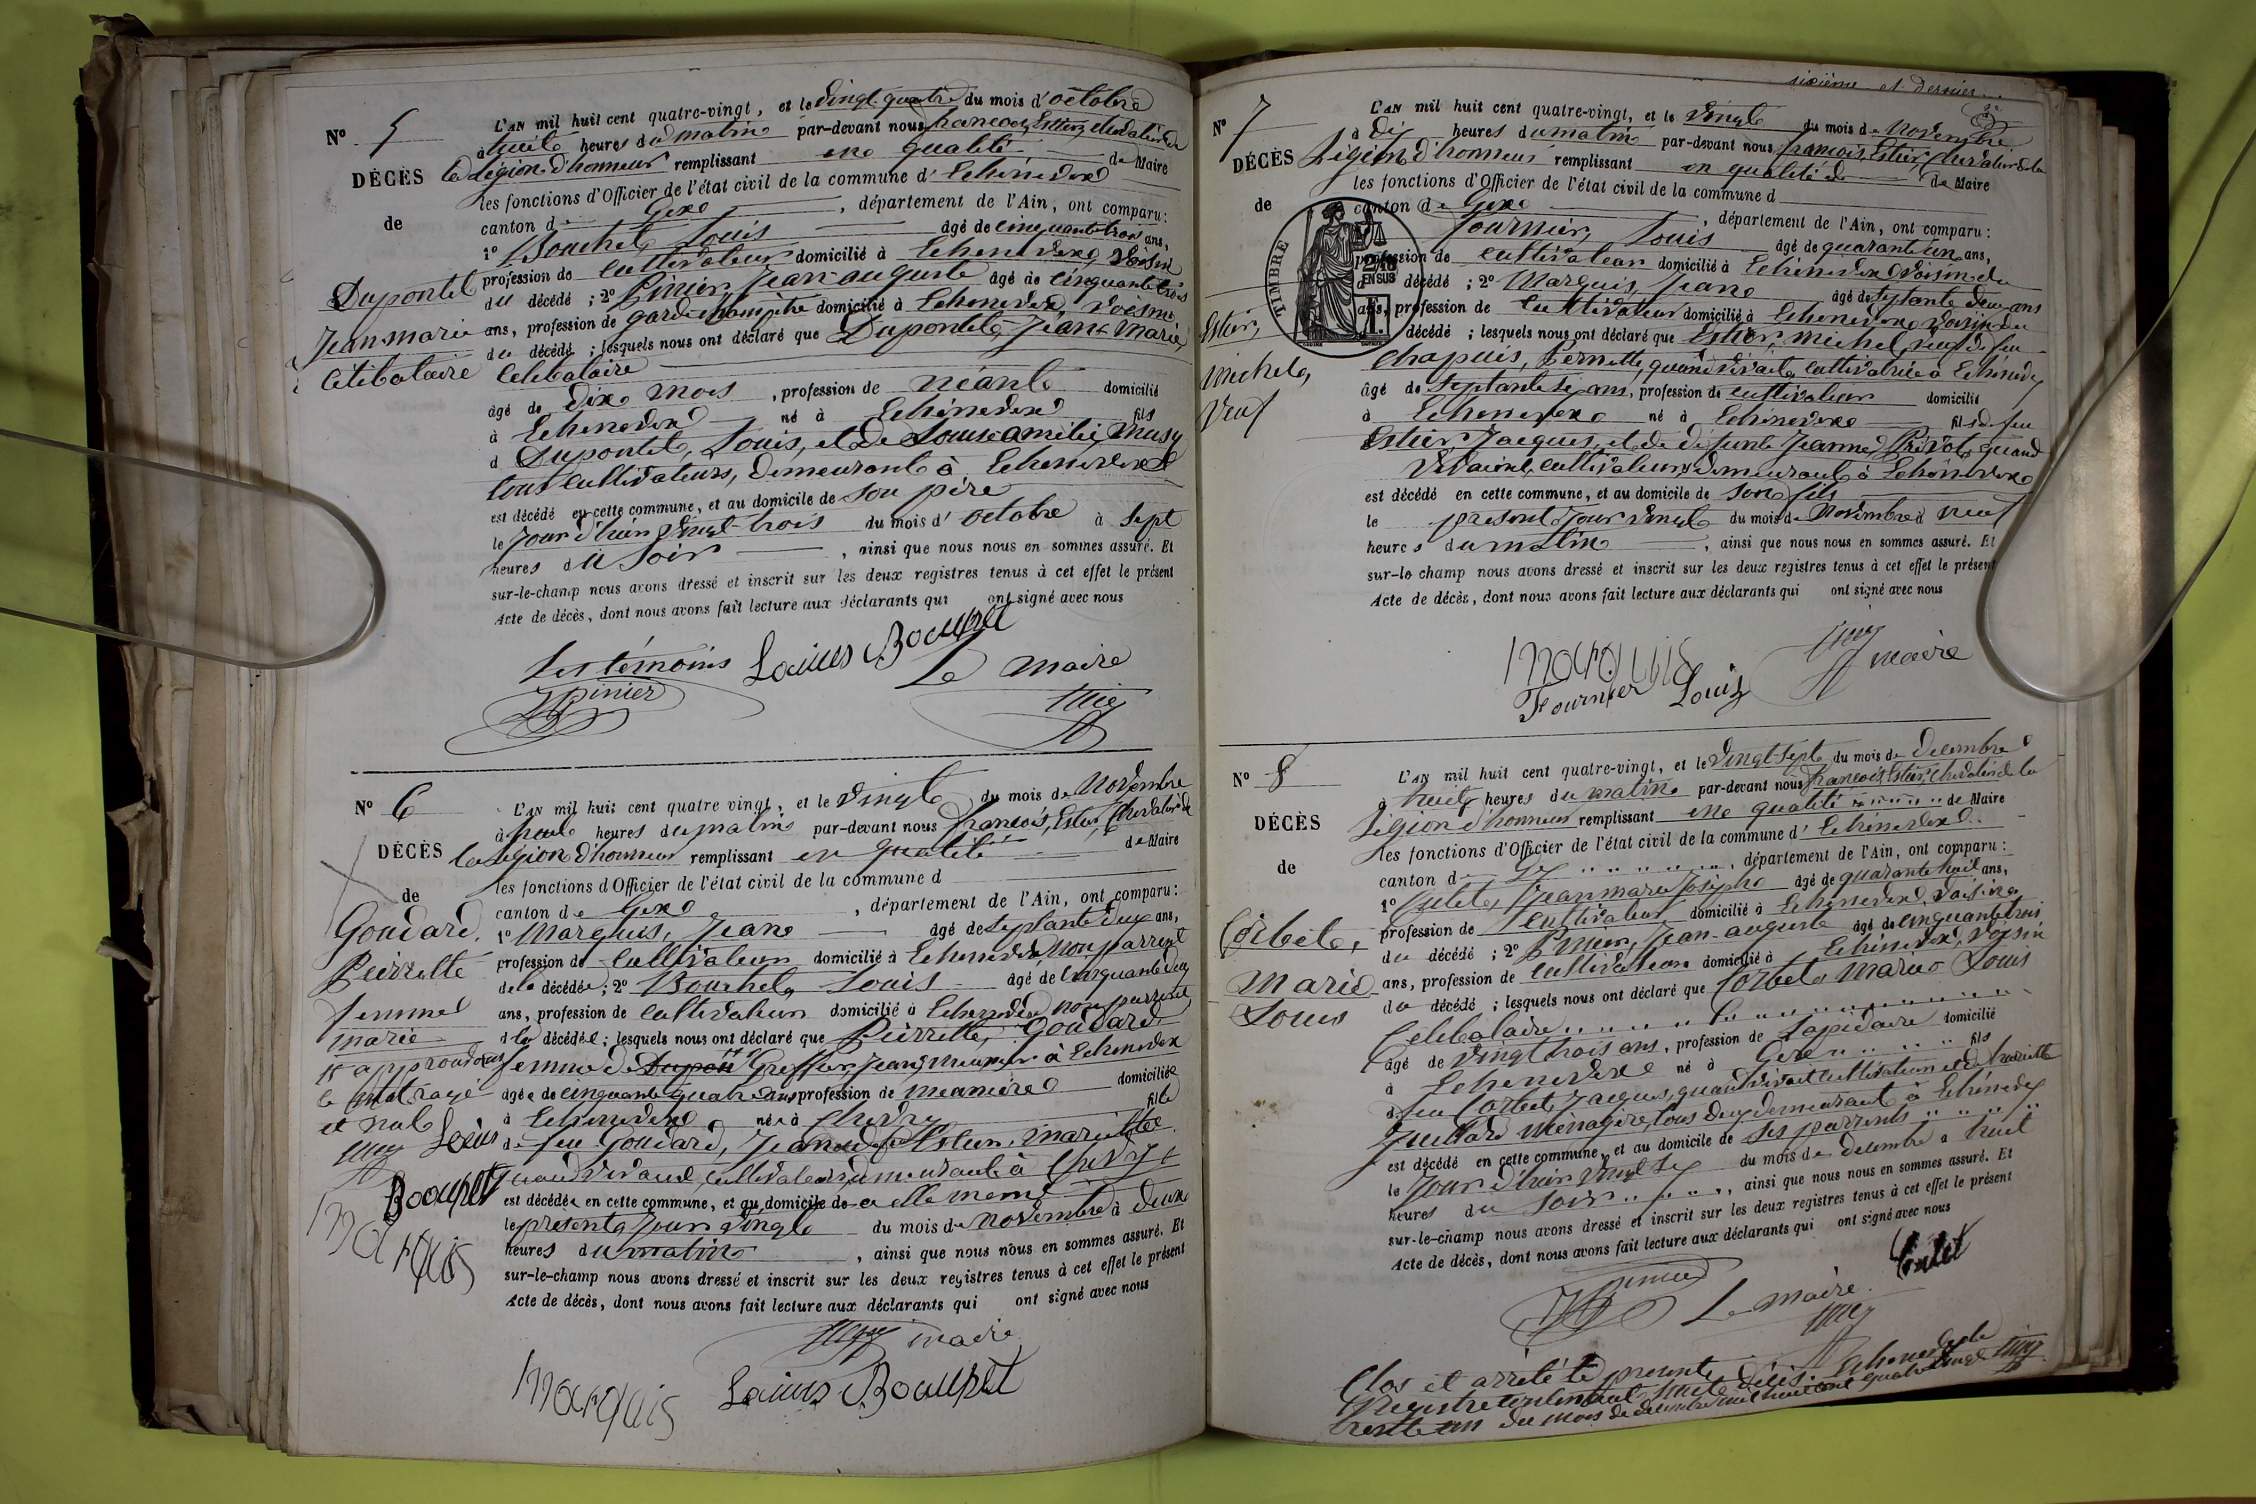 N° 5
DÉCÈS
de
Dupontet
Jean marie
Célibataire
L'AN mil huit cent quatre-vingt, et le vingt quatre du mois d'octobre
à huit heures du matin par-devant nous françois, Estier, chevalier de
la Légion d'honneur remplissant en qualité de Maire
les fonctions d'Officier de l'état civil de la commune d'Echenevex
canton de Gex, département de l'Ain, ont comparu:
1° Bouchet Louis âgé de cinquante trois ans,
profession de cultivateur domicilié à Echenevex, voisin
du décédé; 2° Pinier, Jean-auguste âgé de cinquante trois
ans, profession de garde champêtre domicilié à Echenevex, voisin
du décédé; lesquels nous ont déclaré que Dupontet, Jean Marie
Célibataire
âgé de dix mois, profession de néant domicilié
à Echenevex né à Echenevex fils
d Dupontet, Louis, et de Louise amélie Musy
tous cultivateurs, demeurant à Echenevex
est décédé en cette commune, et au domicile de son père
le jour d'hier vingt-trois du mois d'octobre à sept
heures du soir, ainsi que nous nous en sommes assuré. Et
sur-le-champ nous avons dressé et inscrit sur les deux registres tenus à cet effet le présent
Acte de décès, dont nous avons fait lecture aux déclarants qui ont signé avec nous
Les témoins Louius Boouplet
Le maire
Pinier
N° 6
DÉCÈS
de
Goudard
Peirrette
femme
marie
approuvons
le mot rayé
et nul
Louius
Boouplet
marquis
L'AN mil huit cent quatre vingt, et le vingt du mois de Novembre
à heures du matin par-devant nous françois, Estier, Chevalier de
la Légion d'honneur remplissant en qualité de Maire
les fonctions d'Officier de l'état civil de la commune d
canton de Gex, département de l'Ain, ont comparu:
1° Marquis, Jean âgé de septante deux ans,
profession de cultivateur domicilié à Echenevex, non parrent
de la décédée; 2° Bouchet, Louis âgé de cinquante
ans, profession de cultivateur domicilié à Echenevex non parrent
de la décédée; lesquels nous ont déclaré que Peirrette, Goudard
femme de Jean, à Echenevex
âgée de cinquante quatre ans profession de domiciliée
à Echenevex née à Chevry fille
de feu Goudard, Jean
quand vivant cultivateurs demeurant à Chevry
est décédée en cette commune, et au domicile de a elle meme
le présent jour vingt du mois de novembre à deux
heures du matin, ainsi que nous nous en sommes assuré. Et
sur-le-champ nous avons dressé et inscrit sur les deux registres tenus à cet effet le présent
Acte de décès, dont nous avons fait lecture aux déclarants qui ont signé avec nous
maire
marquis Louius Boouplet
sixième et dernier
N° 7
DÉCÈS
de
Estier,
michel,
Veuf
TIMBRE
2/10
EN SUS
L'AN mil huit cent quatre-vingt, et le vingt du mois de Novembre
à dix heures du matin par-devant nous françois, Estier, Chevalier de la
Légion d'honneur remplissant en qualité de Maire
les fonctions d'Officier de l'état civil de la commune d
canton de Gex, département de l'Ain, ont comparu:
Fournier, Louis âgé de quarante un ans,
profession de cultivateur domicilié à Echenevex voisin du
décédé; 2° Marquis, Jean âgé de septante deux ans
ans, profession de cultivateur domicilié à Echenevex voisin du
décédé; lesquels nous ont déclaré que Estier, michel, veuf de feu
Chapuis, Pernette, quand vivait cultivatrice à Echenevex
âgé de septante six ans, profession de cultivateur domicilié
à Echenevex né à Echenevex fils de feu
Estier Jacques, et de défunte Jeanne, Prévot, quand
vivaient, cultivateurs demeurant à Echenevex
est décédé en cette commune, et au domicile de son fils
le présent jour vingt du mois de Novembre à neuf
heures du matin, ainsi que nous nous en sommes assuré. Et
sur-le champ nous avons dressé et inscrit sur les deux registres tenus à cet effet le présent
Acte de décès, dont nous avons fait lecture aux déclarants qui ont signé avec nous
marquis maire
Fournier Louis
N° 8
DÉCÈS
de
Corbet,
Marie
Louis
L'AN mil huit cent quatre-vingt, et le vingt-sept du mois de décembre
à huit heures du matin par-devant nous françois, Estier, Chevalier de la
Légion d'honneur remplissant en qualité de Maire
les fonctions d'Officier de l'état civil de la commune d'Echenevex
canton de Gex, département de l'Ain, ont comparu:
1° Jean marie Joseph âgé de quarante huit ans,
profession de cultivateur domicilié à Echenevex, voisin
du décédé; 2° Pinier, Jean-auguste âgé de cinquante trois
ans, profession de cultivateur domicilié à Echenevex, voisin
du décédé; lesquels nous ont déclaré que Corbet Marie Louis
Célibataire
âgé de vingt trois ans, profession de Lapidaire domicilié
à Echenevex né à Gex fils
de feu Corbet, Jacques, quand vivait cultivateur et de henriette
ménagère, tous deux demeurant à Echenevex
est décédé en cette commune, et au domicile de ses parrents
le jour d'hier vingt six du mois de décembre à huit
heures du soir, ainsi que nous nous en sommes assuré. Et
sur-le-champ nous avons dressé et inscrit sur les deux registres tenus à cet effet le présent
Acte de décès, dont nous avons fait lecture aux déclarants qui ont signé avec nous
Pinier Le maire
Clos et arrêté le présent
Registre contenant huit décès. Echenevex le
trente un du mois de décembre mil huit cent quatre vingt